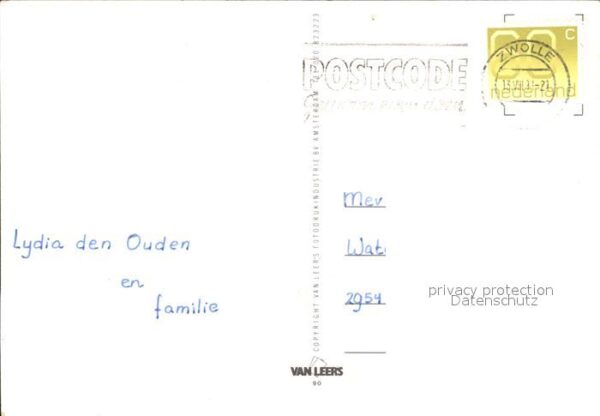 Lydia den Ouden
en
familie
COPYRIGHT VAN LEERS FOTODRUKINDUSTRIE BV AMSTERDAM
POSTCODE
60 C
nederland
ZWOLLE
Mev
Wat
2954
privacy protection
Datenschutz
VAN LEERS
90